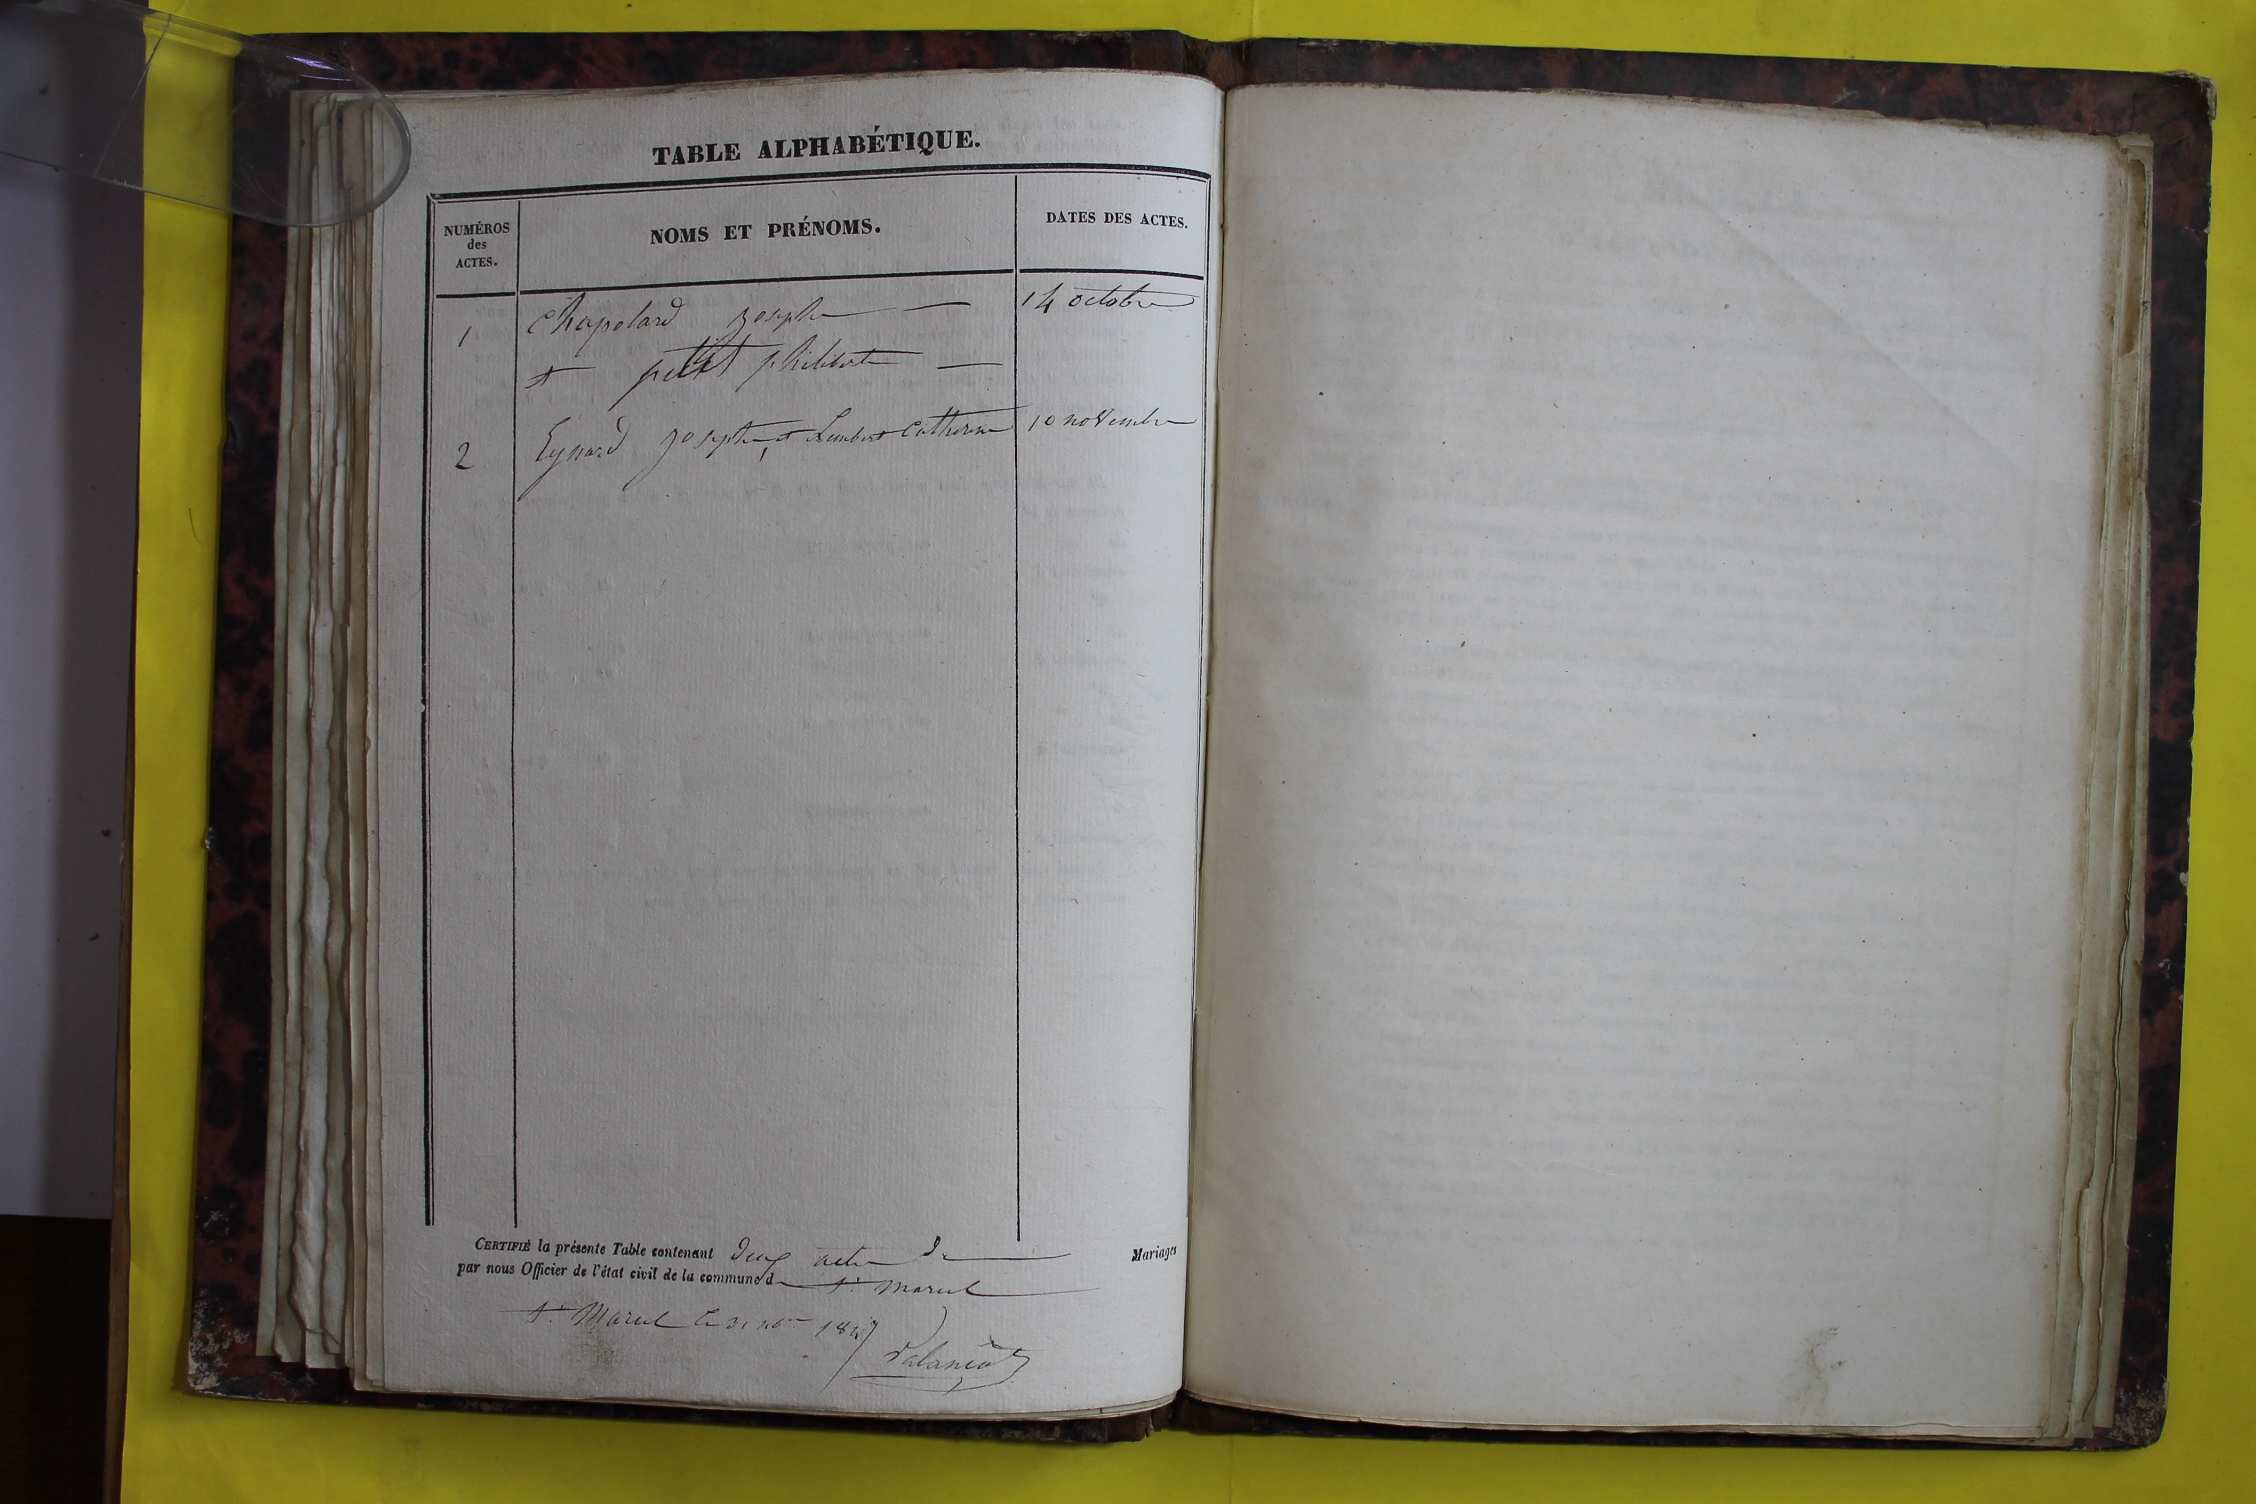 TABLE ALPHABÉTIQUE.
NUMÉROS
des
ACTES.
NOMS ET PRÉNOMS.
DATES DES ACTES.
1 Chapolard joseph 14 octobre
et petit philiberte
2 Eynard joseph, et Lambert Catherine 10 novembre
CERTIFIÉ la présente Table contenant deux actes de Mariages
par nous Officier de l'état civil de la commune d St Marcel
St Marcel le 31 Xbre 1847